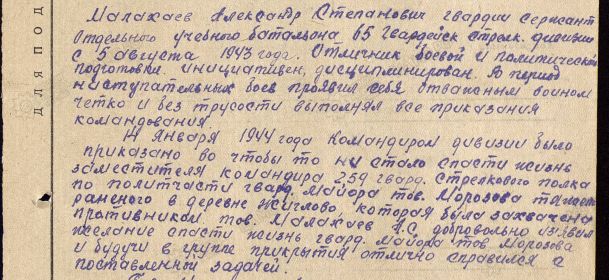 Малахаев Александр Степанович гвардии сержант
Отдельного учебного батальона 65 Гвардейск Стрелк. дивизии
с 5 августа 1943 года. Отличник боевой и политической
подготовки. инициативен, дисциплинирован. В период
наступательных боев проявил себя отважным воином
четко и без трусости выполнял все приказания
командования.
14 Января 1944 года Командиром дивизии было
приказано во чтобы то ни стало спасти жизнь
заместителя командира 259 гвард. Стрелкового полка
по политчасти гвард. Майора тов. Морозова
раненого в деревне Жиглово, которая была захвачена
противником. тов. Малахаев А.С. добровольно изъявил
желание спасти жизнь гвард. Майора тов Морозова
и будучи в группе прикрытия отлично справился с
поставленной задачей.
ДЛЯ ПОД